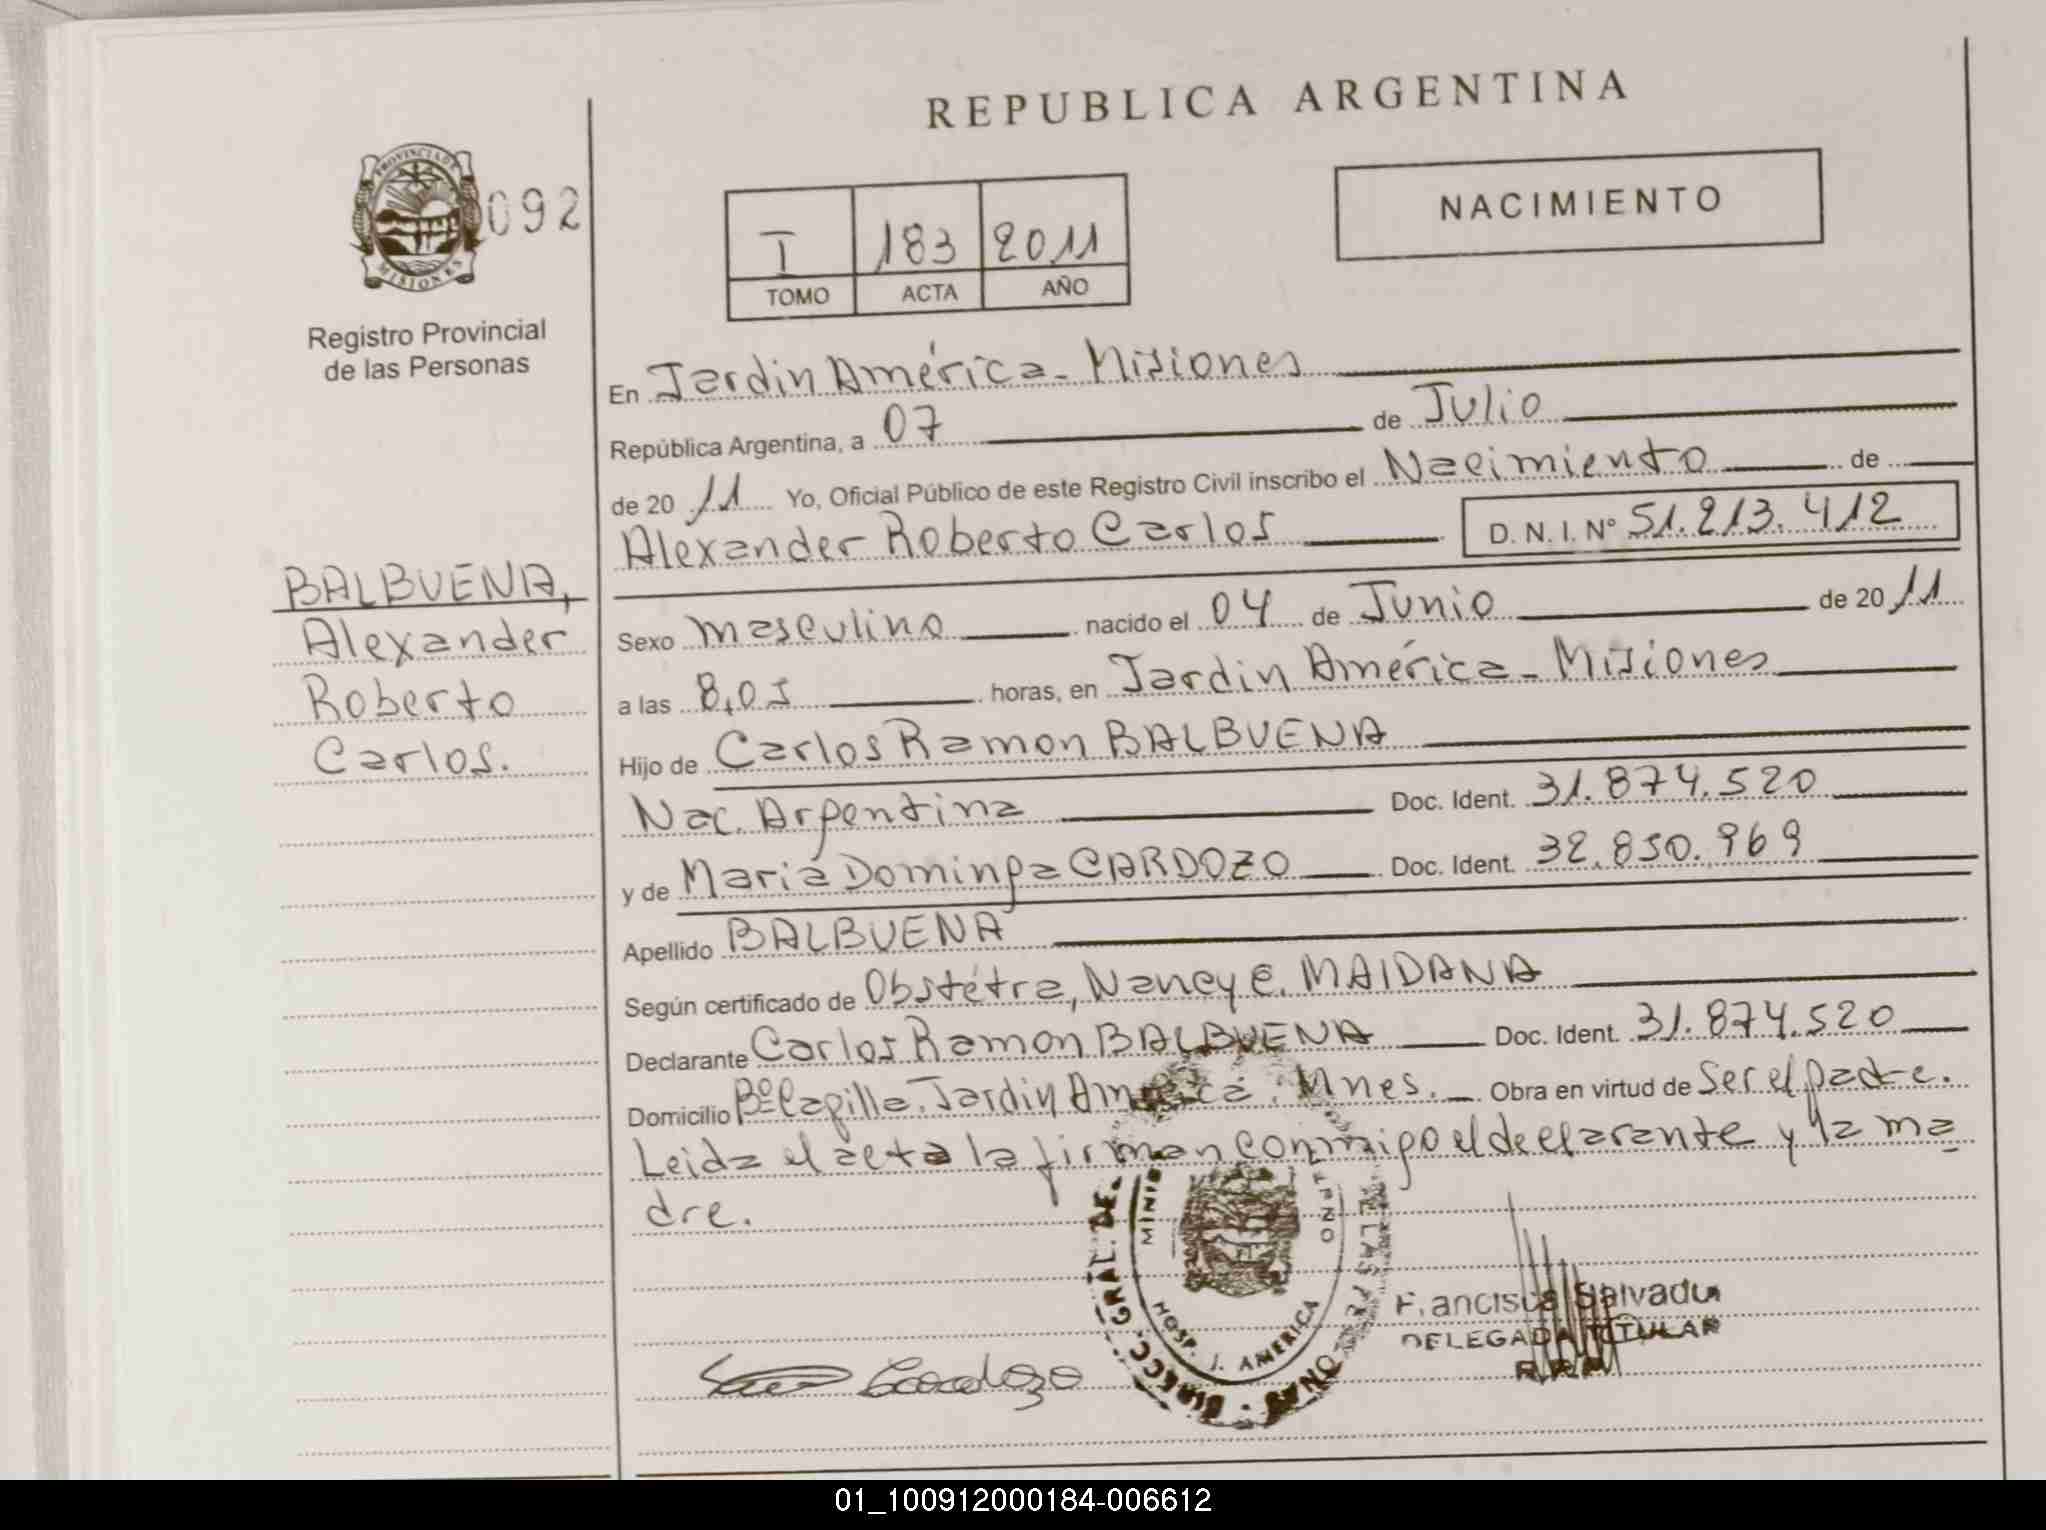 REPUBLICA ARGENTINA
PROVINCIA DE
MISIONES
092
Registro Provincial
de las Personas
I 183 2011
TOMO ACTA AÑO
NACIMIENTO
BALBUENA,
Alexander
Roberto
Carlos.
En Jardin América - Misiones
República Argentina, a 07 de Julio
de 20 11 Yo, Oficial Público de este Registro Civil inscribo el Nacimiento de
Alexander Roberto Carlos D. N. I. N° 51.213.412
Sexo masculino nacido el 04 de Junio de 20 11
a las 8,05 horas, en Jardin América - Misiones
Hijo de Carlos Ramon BALBUENA
Nac. Argentina Doc. Ident. 31.874.520
y de Maria Dominga CARDOZO Doc. Ident. 32.850.969
Apellido BALBUENA
Según certificado de Obstétra, Nancy E. MAIDANA
Declarante Carlos Ramon BALBUENA Doc. Ident. 31.874.520
Domicilio Bº Capilla. Jardin América. Mnes. Obra en virtud de Ser el padre.
Leida el acta la firman conmigo el declarante y la ma
dre.
DIRECC. GRAL. DE
HOSP. J. AMERICA
Cardozo
DELEGADA TITULAR
01_100912000184-006612